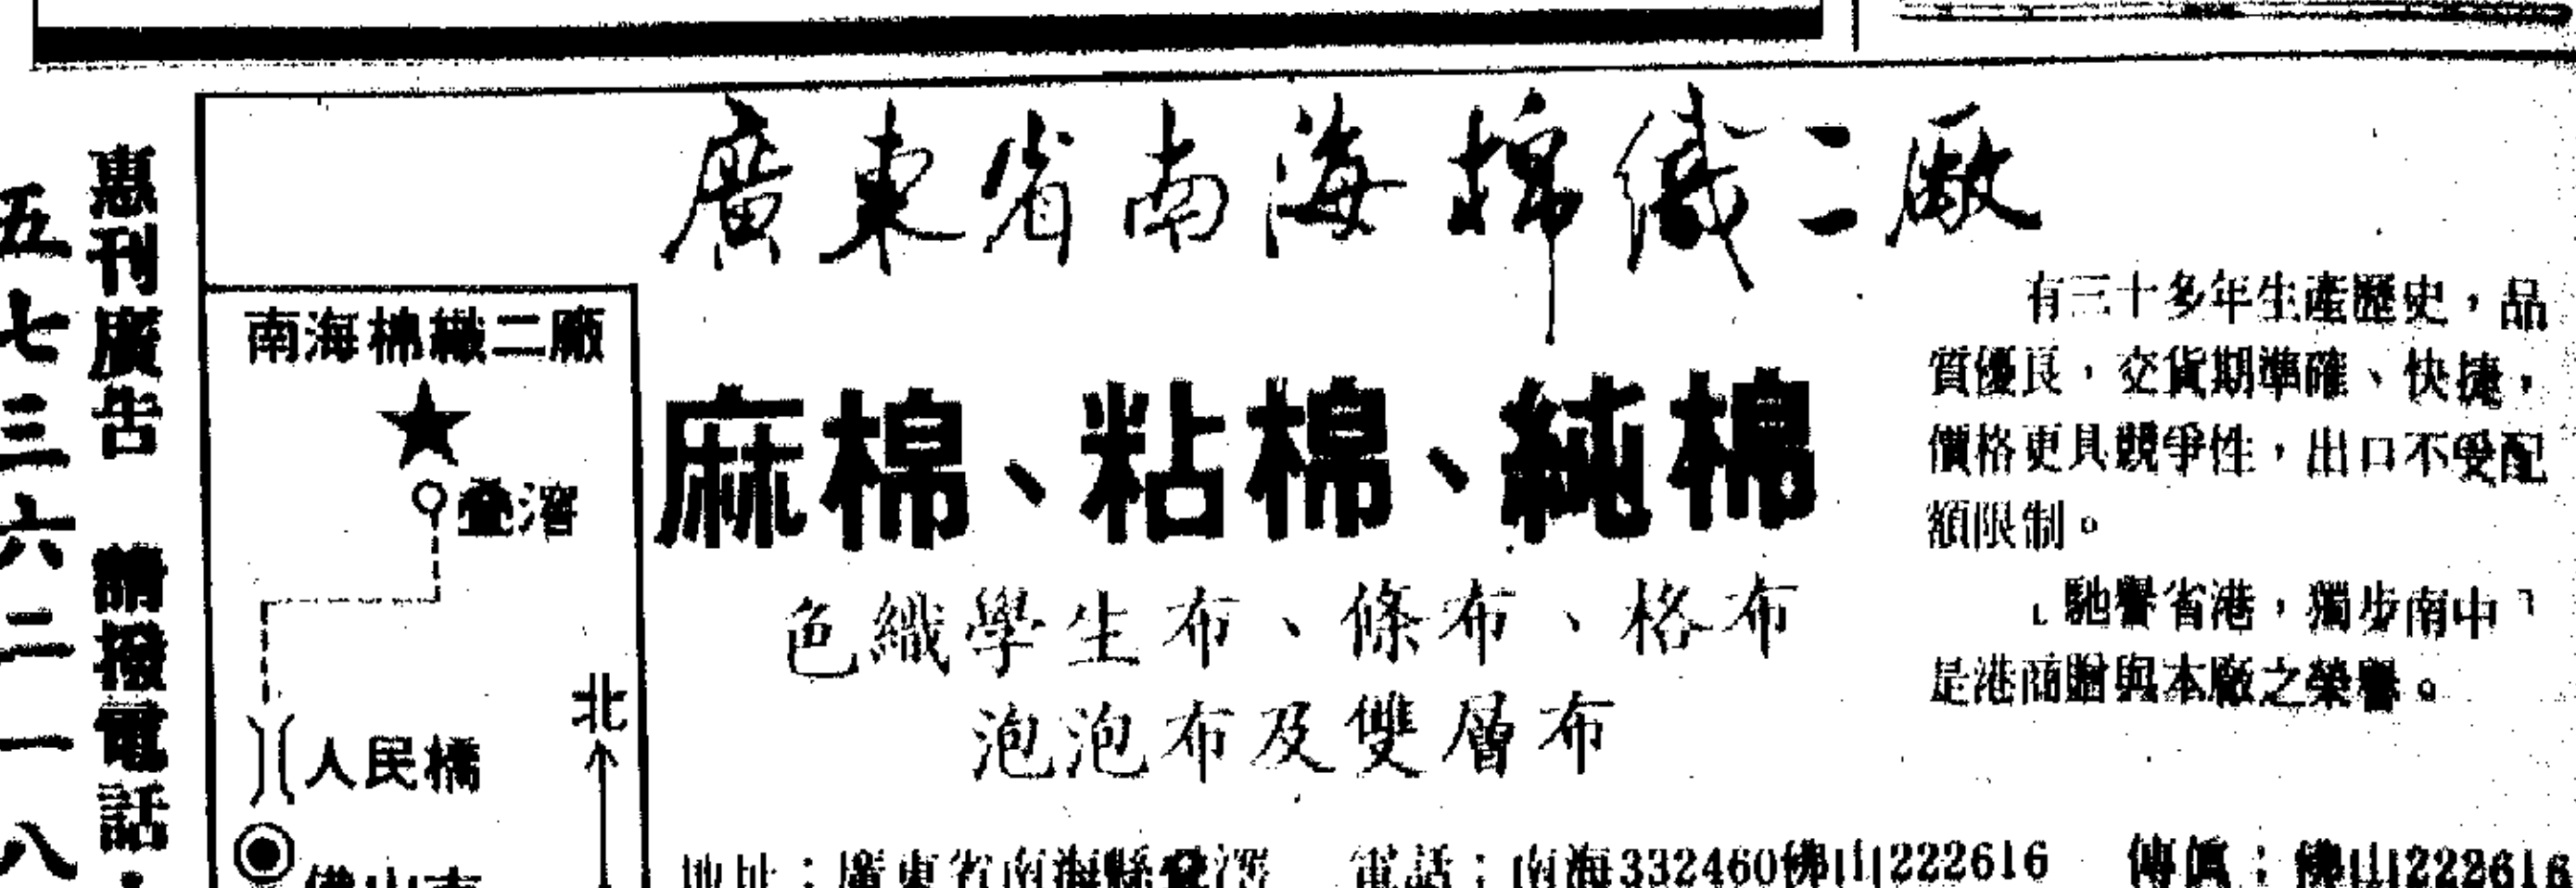 廣東省南海棉織二廠
惠刊廣告　請撥電話：
五七三六二一一八
南海棉織二廠
疊滘
人民橋
北
佛山市
麻棉、粘棉、純棉
色織學生布、條布、格布
泡泡布及雙層布
有三十多年生產歷史，品
質優良，交貨期準確、快捷，
價格更具競爭性，出口不受配
額限制。
「馳譽省港，獨步南中」
是港商贈與本廠之榮譽。
地址：廣東省南海縣疊滘　電話：南海332460佛山222616　傳真：佛山222616